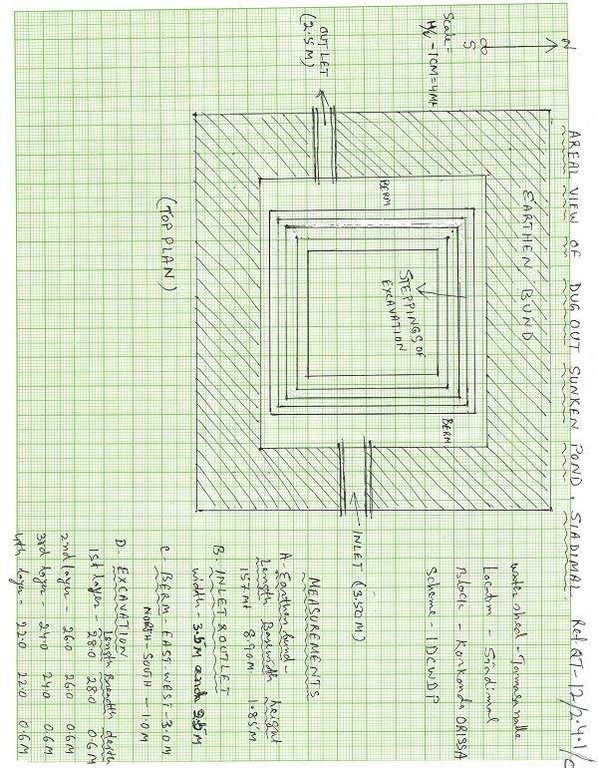 AREAL VIEW OF DUGOUT SUNKEN POND, SIADIMAL. Ref QT-12/2.4.1/
N
S
Scale =
H/V - 1CM = 4Mt
OUTLET
(2.5M)
EARTHEN BUND
BERM
STEPPINGS OF
EXCAVATION
BERM
(TOP PLAN)
INLET (3.50M)
Watershed -
Location - Siadimal
Block - Korkonda ORISSA
Scheme - IDCWDP
MEASUREMENTS
A. Earthen bund -
Length Breadth height
157Mt 8.90M 1.85M
B. INLET & OUTLET
width - 3.5M and 2.5M
C. BERM - EAST-WEST - 3.0M
NORTH-SOUTH - 1.0M
D. EXCAVATION
Length Breadth depth
1st layer - 28.0 28.0 0.6M
2nd layer - 26.0 26.0 0.6M
3rd layer - 24.0 24.0 0.6M
4th layer - 22.0 22.0 0.6M